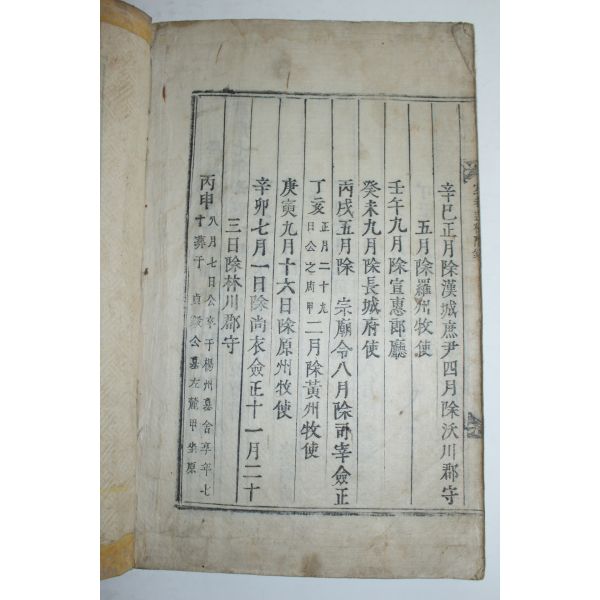 辛巳正月除漢城庶尹四月除沃川郡守
五月除羅州牧使
壬午九月除宣惠郎廳
癸未九月除長城府使
丙戌五月除 宗廟令八月除司宰僉正
丁亥 正月二十九日公之周甲 二月除黃州牧使
庚寅九月十六日除原州牧使
辛卯七月一日除尚衣僉正十一月二十
三日除林川郡守
丙申 八月七日公卒于楊州墓舍享年七十葬于貞毅公墓左麓甲坐原